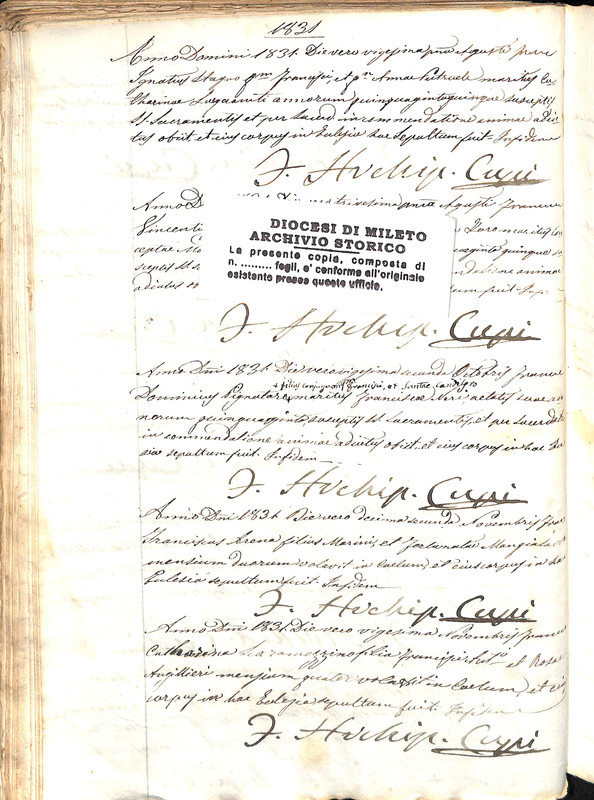 1831
Anno Domini 1831. Die vero vigesima Agusti
Ignatius Stagno qm Francisci, et qm Annae maritus Ca
tharinae annorum quinquagintaquinque susceptis
SS. Sacramentis et per Sacerd in commendatione animae adiu
tus obiit, et eius corpus in Eclesia hac Sepultum fuit. In fidem
J. Cupi
Anno D trigesima Agusti
Vincenti Toro maritus
ceptae quinquaginta quinque su
sceptis SS. animae
adiutus fuit. In fi.
DIOCESI DI MILETO
ARCHIVIO STORICO
La presente copia, composta di
n. ......... fogli, e' conforme all'originale
esistente presso questo ufficio.
J. Cupi
Anno Dni 1831. Die vero vigesima secunda Octobris
+ filius Francisci, et
Dominicus Pignataro maritus Franciscae Neri aetatis suae an
norum quinquaginta, susceptis SS. Sacramentis, et per Sacerdote
in commendatione animae adiutus obiit, et eius corpus in hac Ecle
sia sepultum fuit. In fidem
J. Cupi
Anno Dni 1831. Die vero decima secunda Novembris
Franciscus Arena filius Marini, et Fortunatae
mensium duorum volavit in Coelum, et eius corpus in hac
Eclesia sepultum fuit. In fidem
J. Cupi
Anno Dni 1831. Die vero vigesima Novembris
Catharina filia Francisci et Rosae
Angillieri mensium volavit in Coelum, et eius
corpus in hac Eclesia sepultum fuit. In fidem
J. Cupi